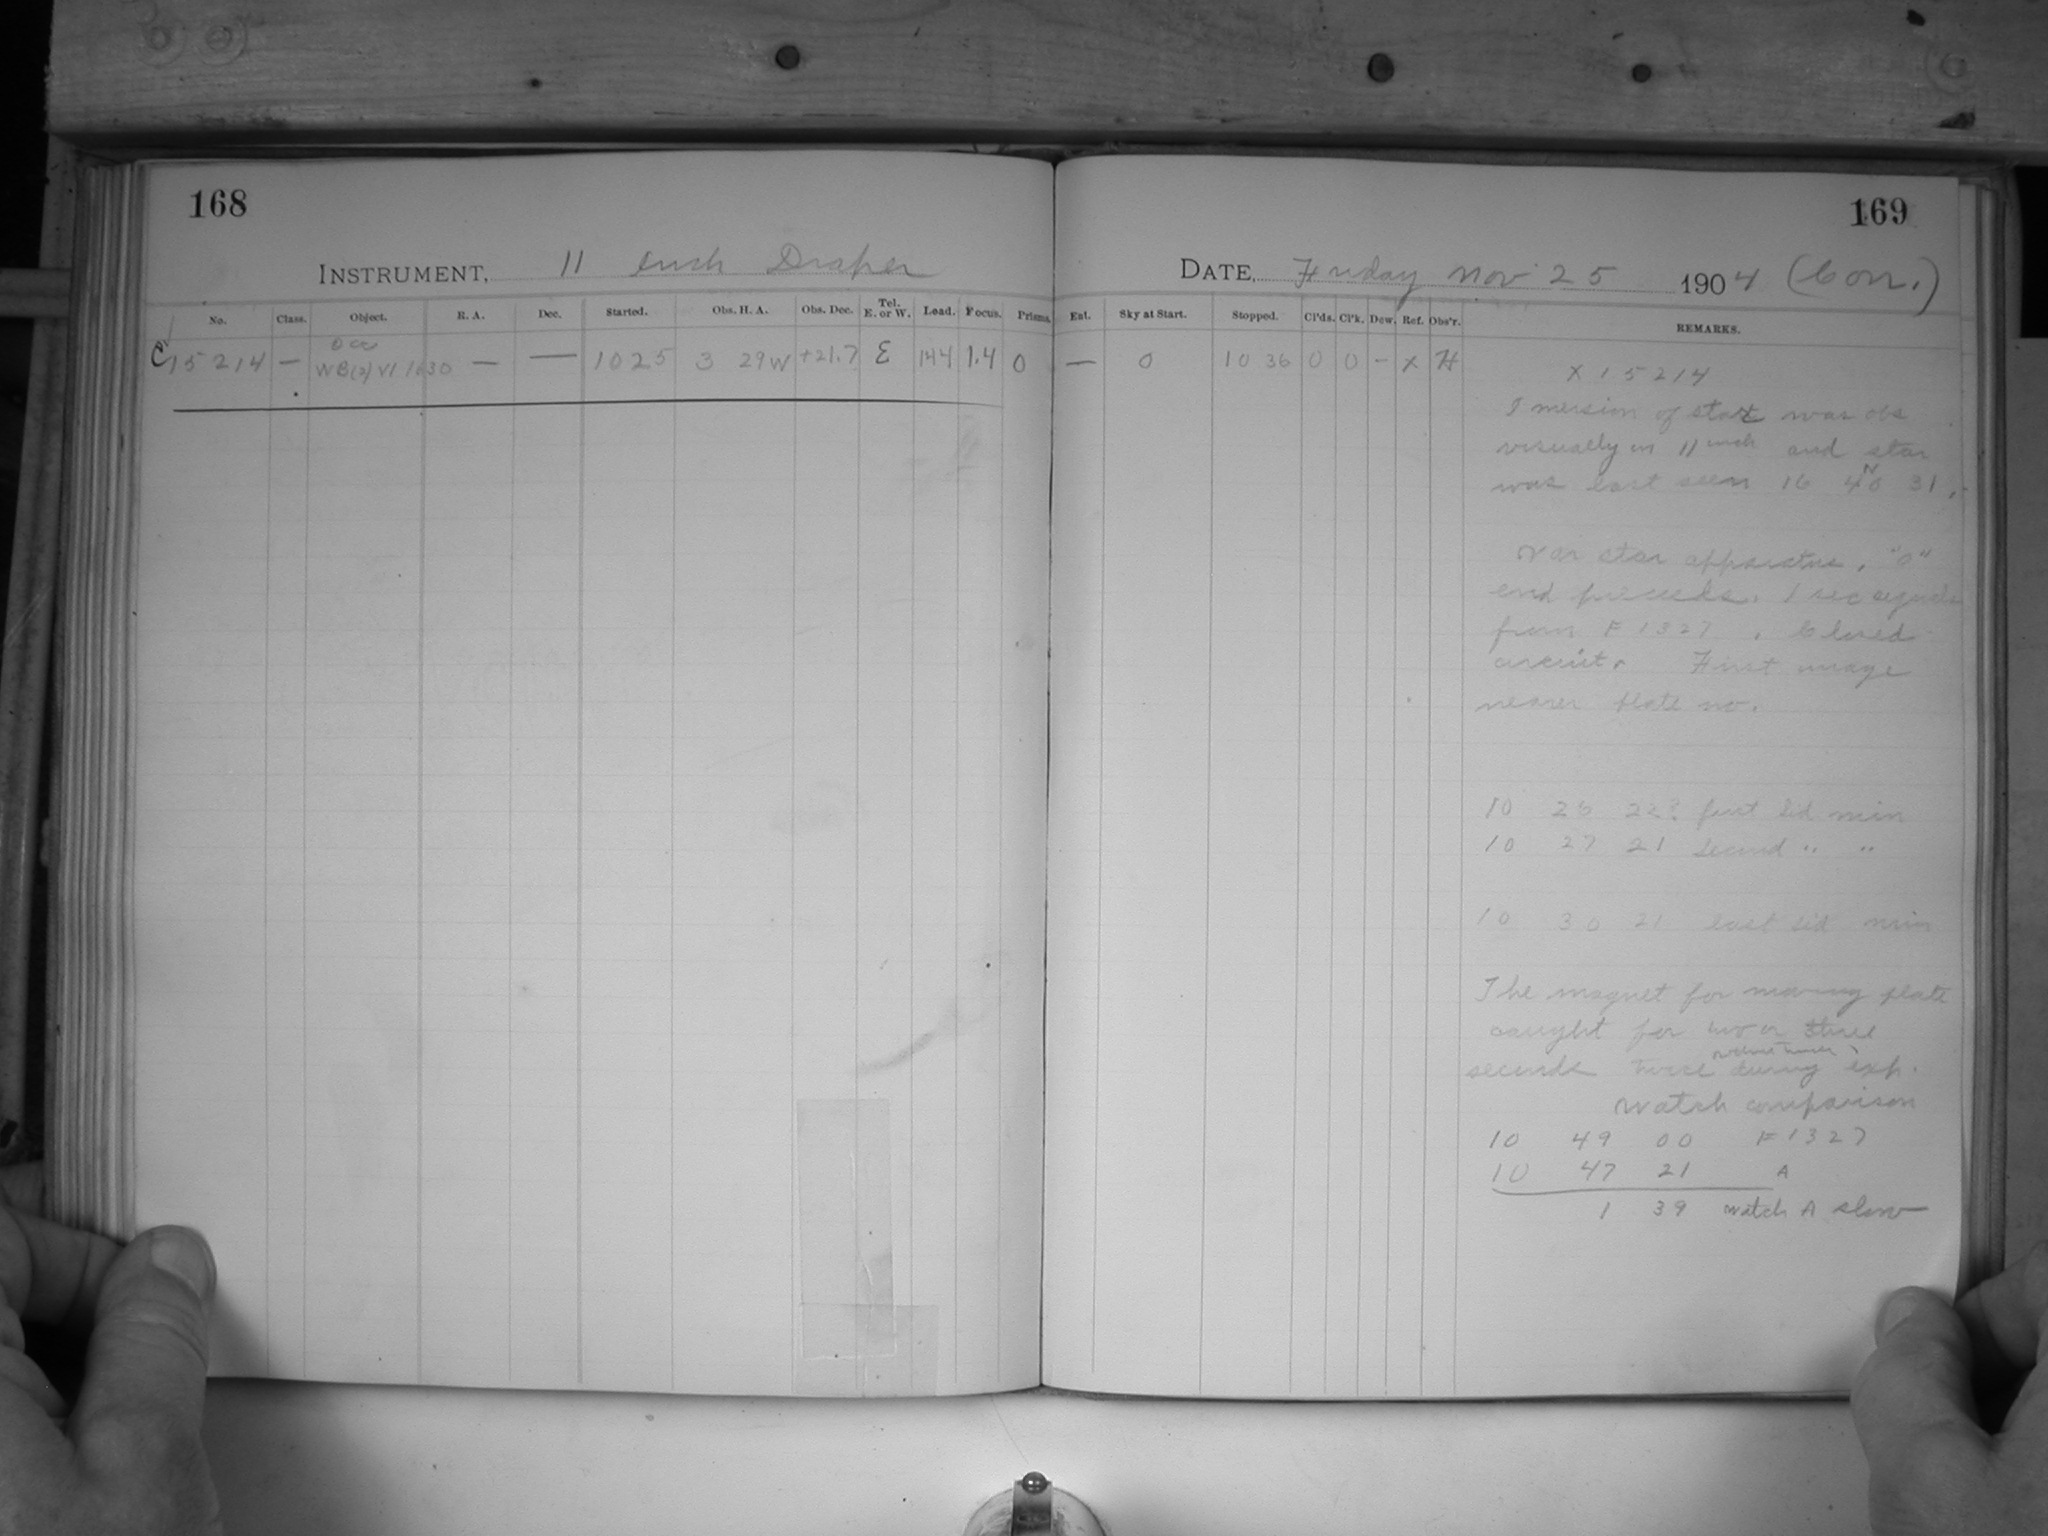 168
INSTRUMENT, 11 inch Draper
No. Class. Object. R. A. Dec. Started. Obs. H. A. Obs. Dec. Tel. E. or W. Load. Focus. Prisms.
Occ
C 15214 — WB(2) VI 1630 — — 10 25 3 29W +21.7 E 144 1.4 0
169
DATE, Friday Nov 25 1904 (Con.)
Ent. Sky at Start. Stopped. Cl'ds. Cl'k. Dew. Ref. Obs'r. REMARKS.
— 0 10 36 0 0 - x H
X 15214
Imersion of star was obs
visually in 11 inch and star
was last seen 16 31.
Var star apparatus, "0"
end precedes. 1 sec signals
from F 1327. Closed
circuit. First image
nearer plate no.
10 26 22? first sid min
10 27 21 second " "
10 30 21 last sid min
The magnet for moving plate
caught for two or three
seconds twice during exp.
Watch comparison
10 49 00 F 1327
10 47 21 A
1 39 watch A slow